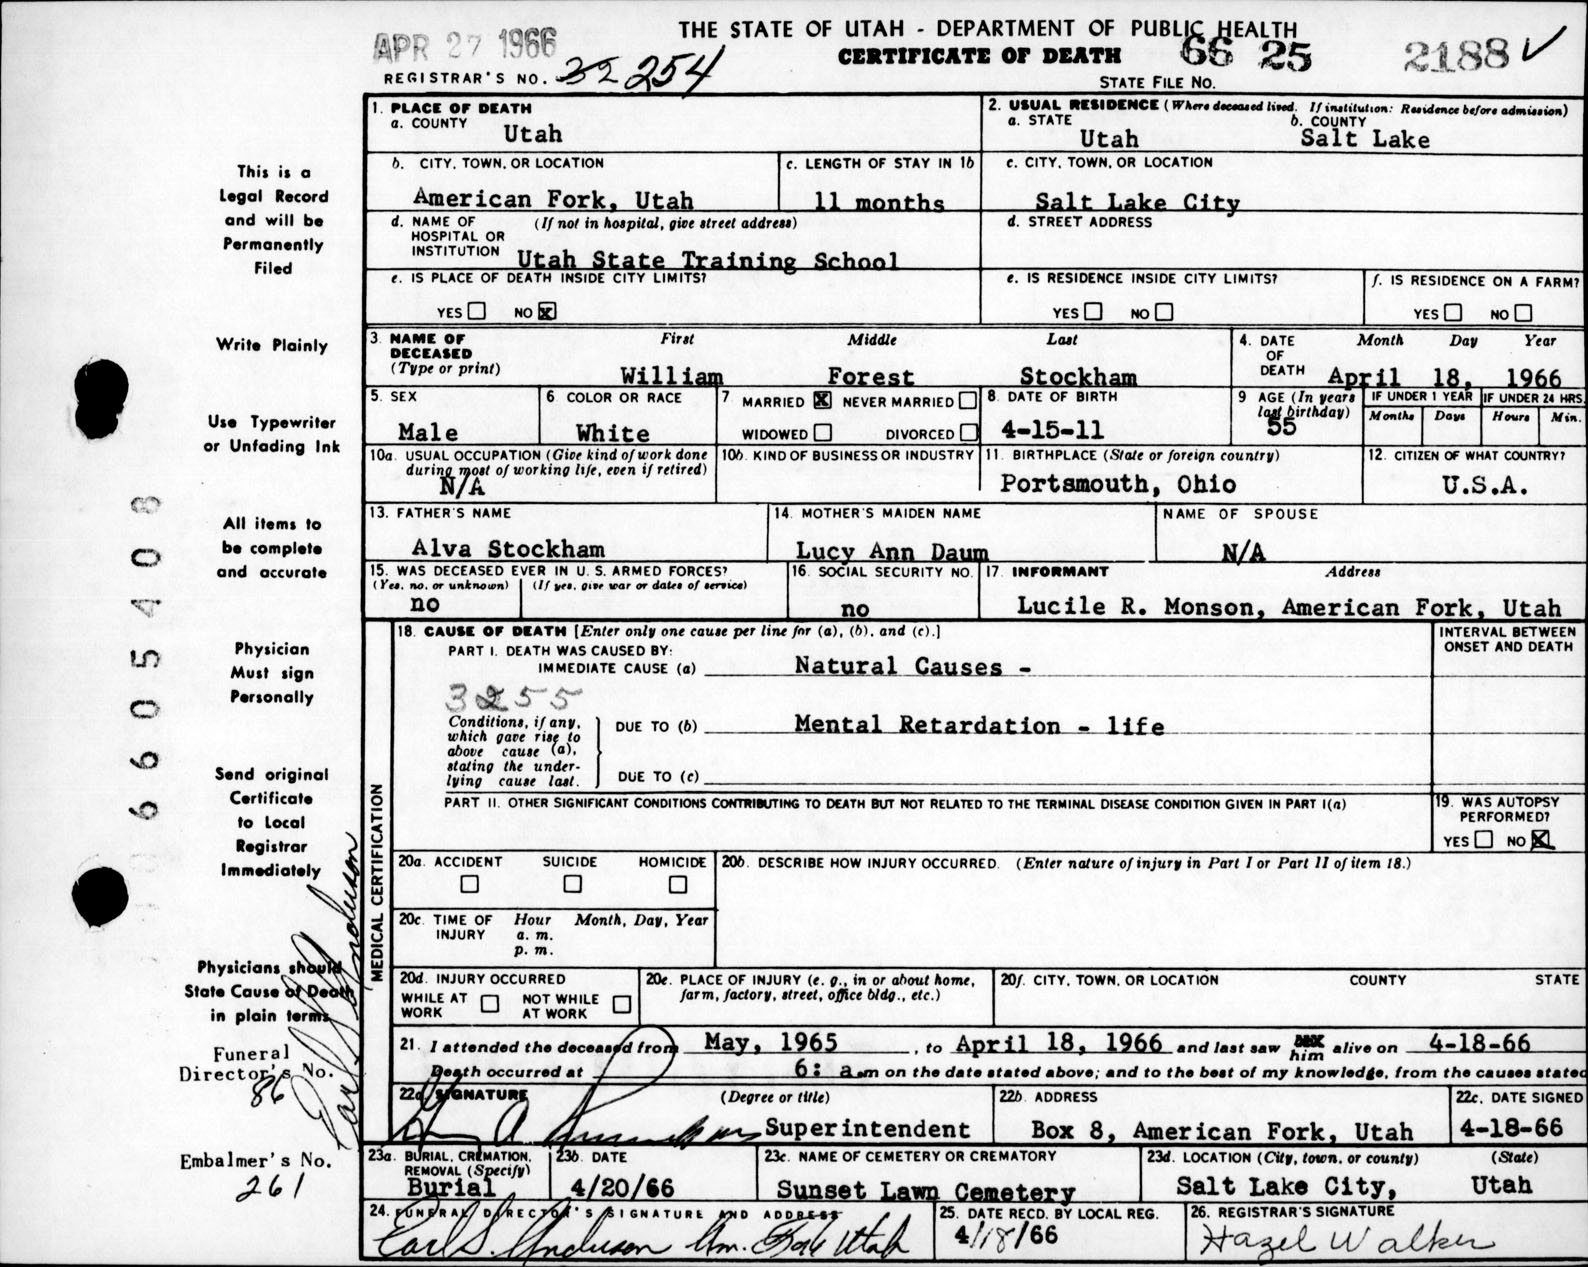 THE STATE OF UTAH - DEPARTMENT OF PUBLIC HEALTH
APR 27 1966
CERTIFICATE OF DEATH 66 25 2188 ✓
REGISTRAR'S NO. 32 254
STATE FILE NO.
1. PLACE OF DEATH
a. COUNTY Utah
2. USUAL RESIDENCE (Where deceased lived. If institution: Residence before admission)
a. STATE Utah b. COUNTY Salt Lake
b. CITY, TOWN, OR LOCATION American Fork, Utah
c. LENGTH OF STAY IN 1b 11 months
c. CITY, TOWN, OR LOCATION Salt Lake City
d. NAME OF HOSPITAL OR INSTITUTION (If not in hospital, give street address) Utah State Training School
d. STREET ADDRESS
e. IS PLACE OF DEATH INSIDE CITY LIMITS? YES NO X
e. IS RESIDENCE INSIDE CITY LIMITS? YES NO
f. IS RESIDENCE ON A FARM? YES NO
3. NAME OF DECEASED (Type or print) First Middle Last
William Forest Stockham
4. DATE OF DEATH Month Day Year
April 18, 1966
5. SEX Male
6 COLOR OR RACE White
7 MARRIED X NEVER MARRIED
WIDOWED DIVORCED
8. DATE OF BIRTH 4-15-11
9 AGE (In years last birthday) 55
IF UNDER 1 YEAR Months Days
IF UNDER 24 HRS. Hours Min.
10a. USUAL OCCUPATION (Give kind of work done during most of working life, even if retired) N/A
10b. KIND OF BUSINESS OR INDUSTRY
11. BIRTHPLACE (State or foreign country) Portsmouth, Ohio
12. CITIZEN OF WHAT COUNTRY? U.S.A.
13. FATHER'S NAME Alva Stockham
14. MOTHER'S MAIDEN NAME Lucy Ann Daum
NAME OF SPOUSE N/A
15. WAS DECEASED EVER IN U. S. ARMED FORCES?
(Yes, no, or unknown) (If yes, give war or dates of service)
no
16. SOCIAL SECURITY NO. no
17. INFORMANT Address
Lucile R. Monson, American Fork, Utah
MEDICAL CERTIFICATION
18. CAUSE OF DEATH [Enter only one cause per line for (a), (b), and (c).]
INTERVAL BETWEEN ONSET AND DEATH
PART I. DEATH WAS CAUSED BY:
IMMEDIATE CAUSE (a) Natural Causes -
3255
Conditions, if any, which gave rise to above cause (a), stating the underlying cause last.
DUE TO (b) Mental Retardation - life
DUE TO (c)
PART II. OTHER SIGNIFICANT CONDITIONS CONTRIBUTING TO DEATH BUT NOT RELATED TO THE TERMINAL DISEASE CONDITION GIVEN IN PART I(a)
19. WAS AUTOPSY PERFORMED?
YES NO X
20a. ACCIDENT SUICIDE HOMICIDE
20b. DESCRIBE HOW INJURY OCCURRED. (Enter nature of injury in Part I or Part II of item 18.)
20c. TIME OF INJURY Hour Month, Day, Year
a. m.
p. m.
20d. INJURY OCCURRED
WHILE AT WORK NOT WHILE AT WORK
20e. PLACE OF INJURY (e. g., in or about home, farm, factory, street, office bldg., etc.)
20f. CITY, TOWN, OR LOCATION COUNTY STATE
21. I attended the deceased from May, 1965, to April 18, 1966 and last saw him alive on 4-18-66
Death occurred at 6: a.m on the date stated above; and to the best of my knowledge, from the causes stated
22a. SIGNATURE (Degree or title) Superintendent
22b. ADDRESS Box 8, American Fork, Utah
22c. DATE SIGNED 4-18-66
23a. BURIAL, CREMATION, REMOVAL (Specify) Burial
23b. DATE 4/20/66
23c. NAME OF CEMETERY OR CREMATORY Sunset Lawn Cemetery
23d. LOCATION (City, town, or county) (State)
Salt Lake City, Utah
24. FUNERAL DIRECTOR'S SIGNATURE AND ADDRESS
Earl S. Anderson Am. Fork Utah
25. DATE RECD. BY LOCAL REG. 4/18/66
26. REGISTRAR'S SIGNATURE Hazel Walker
This is a
Legal Record
and will be
Permanently
Filed
Write Plainly
Use Typewriter
or Unfading Ink
All items to
be complete
and accurate
Physician
Must sign
Personally
Send original
Certificate
to Local
Registrar
Immediately
Physicians should
State Cause of Death
in plain terms
Funeral
Director's No.
86
Embalmer's No.
261
Earl S Anderson
6605408